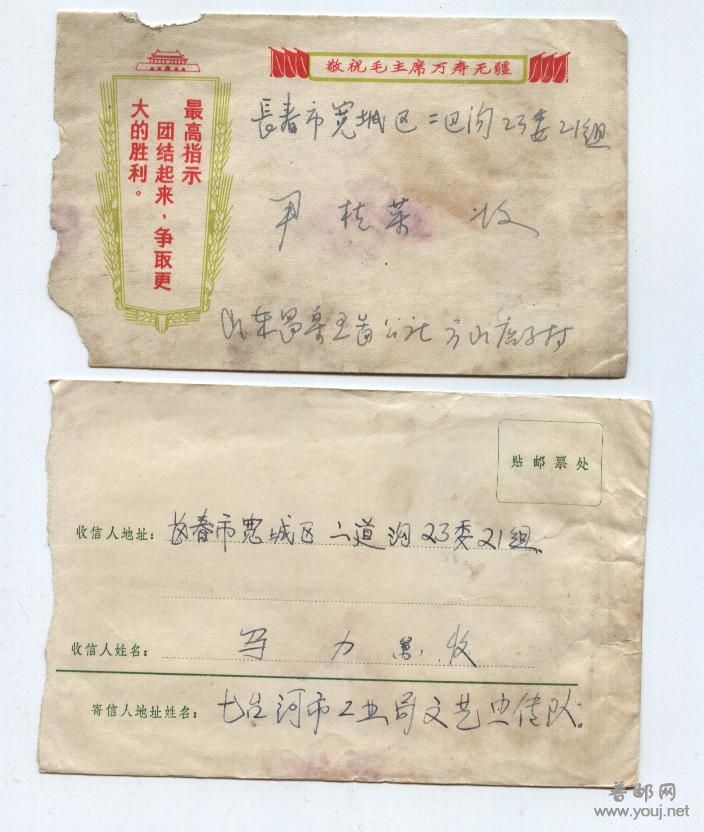 敬祝毛主席万寿无疆
最高指示
团结起来，争取更
大的胜利。
長春市宽城区二道沟23委21组
尹桂荣 收
山东昌乐
公社
村
贴邮票处
收信人地址：长春市宽城区二道沟23委21组
收信人姓名：
力
收
寄信人地址姓名：七台河市工业局文艺宣传队。
普邮网
www.youj.net